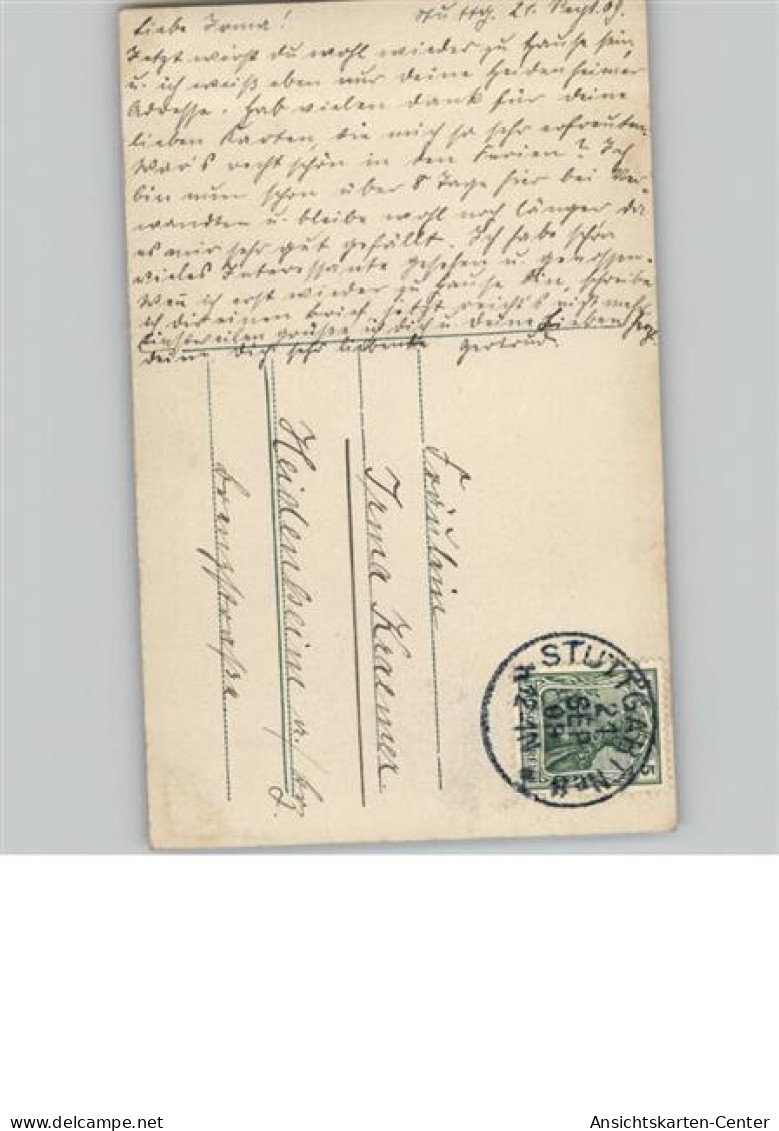 Liebe Irma! Stuttg. 21. Sept. 09.
Jetzt wirst du wohl wieder zu Hause sein,
u. ich weiß eben nur deine Heidenheimer
Addresse. Hab vielen Dank für deine
lieben Karten, die mich so sehr erfreuten.
War's recht schön in den Ferien? Ich
bin nun schon über 8 Tage hier bei Ver-
wandten u. bleibe wohl noch länger da
es mir sehr gut gefällt. Ich habe schon
vieles Interessante gesehen u. genossen.
Wenn ich erst wieder zu Hause bin, schreibe
ich dir einen Brief, jetzt reicht's nicht mehr.
Einstweilen grüßt dich u. deine Lieben
deine dich sehr liebende Gertrud.
Fräulein
Irma Kraemer
Heidenheim a./Brz
Brenzstraße
STUTTGART Nr.
21
SEP
09
12-1N
5
delcampe.net
Ansichtskarten-Center